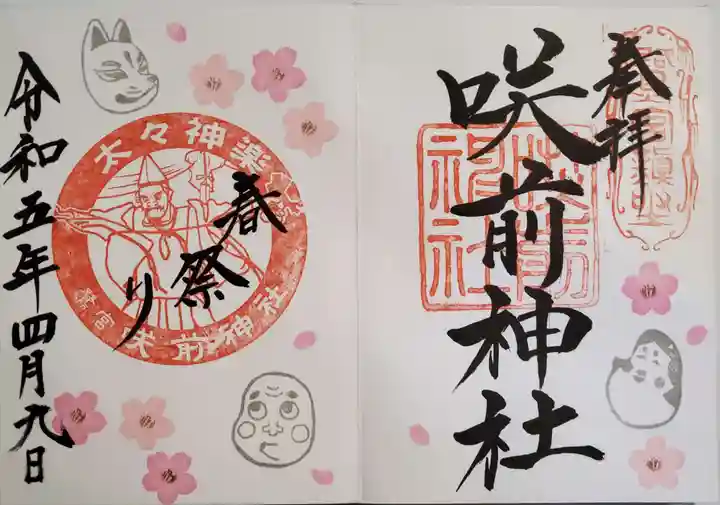 奉拝
咲前神社
咲前神社
太々神楽
春祭り
鷺宮 咲前神社
令和五年四月九日